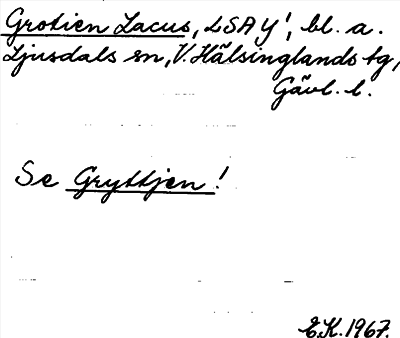 Grotien Lacus, LSAY', bl. a.
Ljusdals sn, V. Hälsinglands tg,
Gävl. l.
Se Gryttjen!
E.K. 1967.